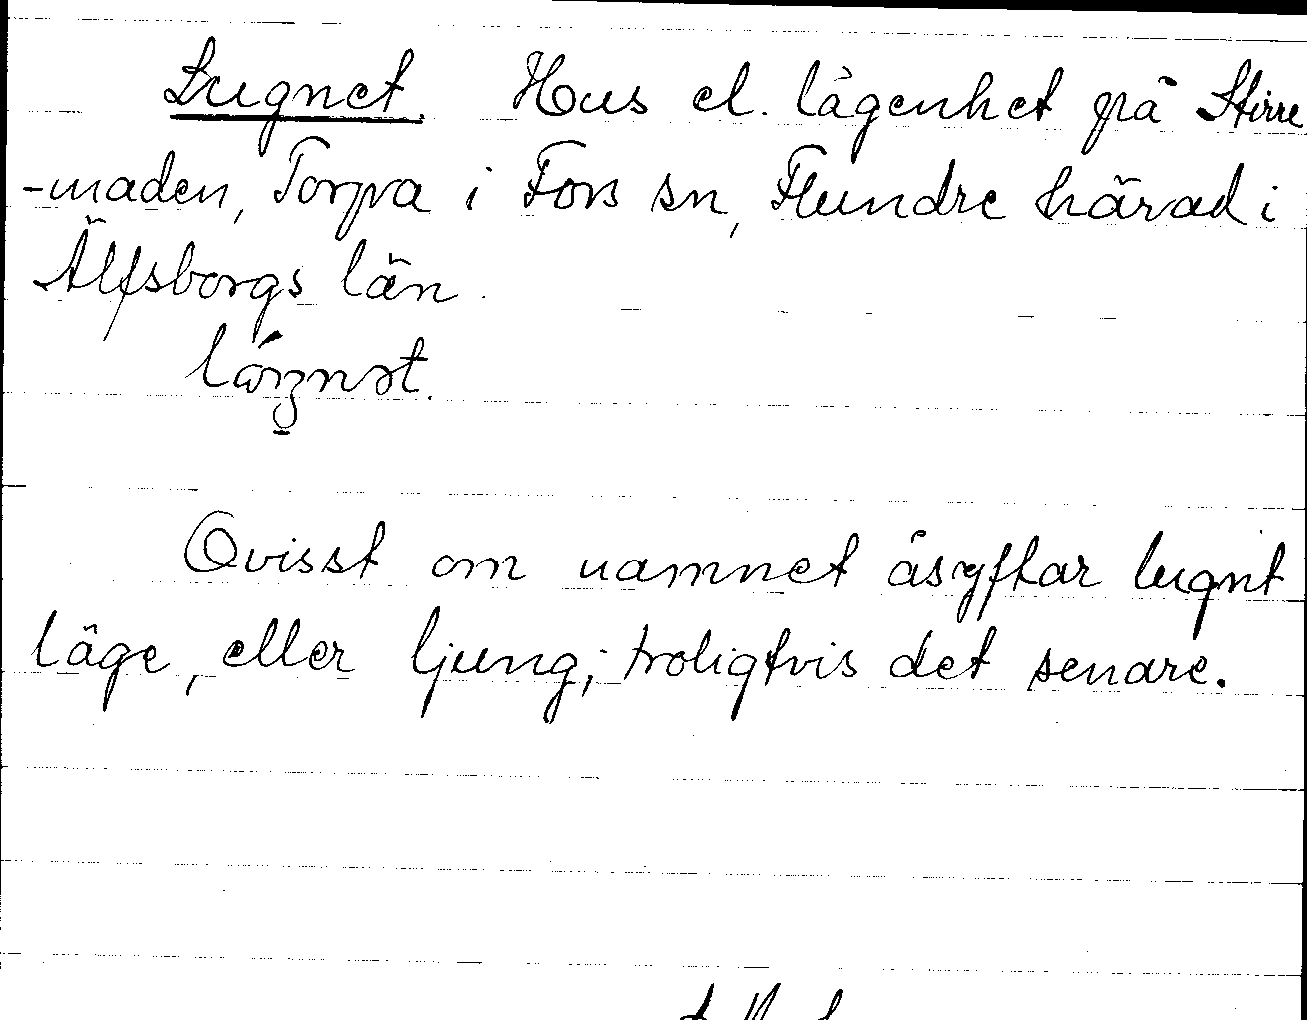 Lugnet. Hus el. lägenhet på Stirre
-maden, Torpa i Fors sn, Flundre härad i
Älfsborgs län.
Ovisst om namnet åsyftar lugnt
läge, eller ljung; troligtvis det senare.